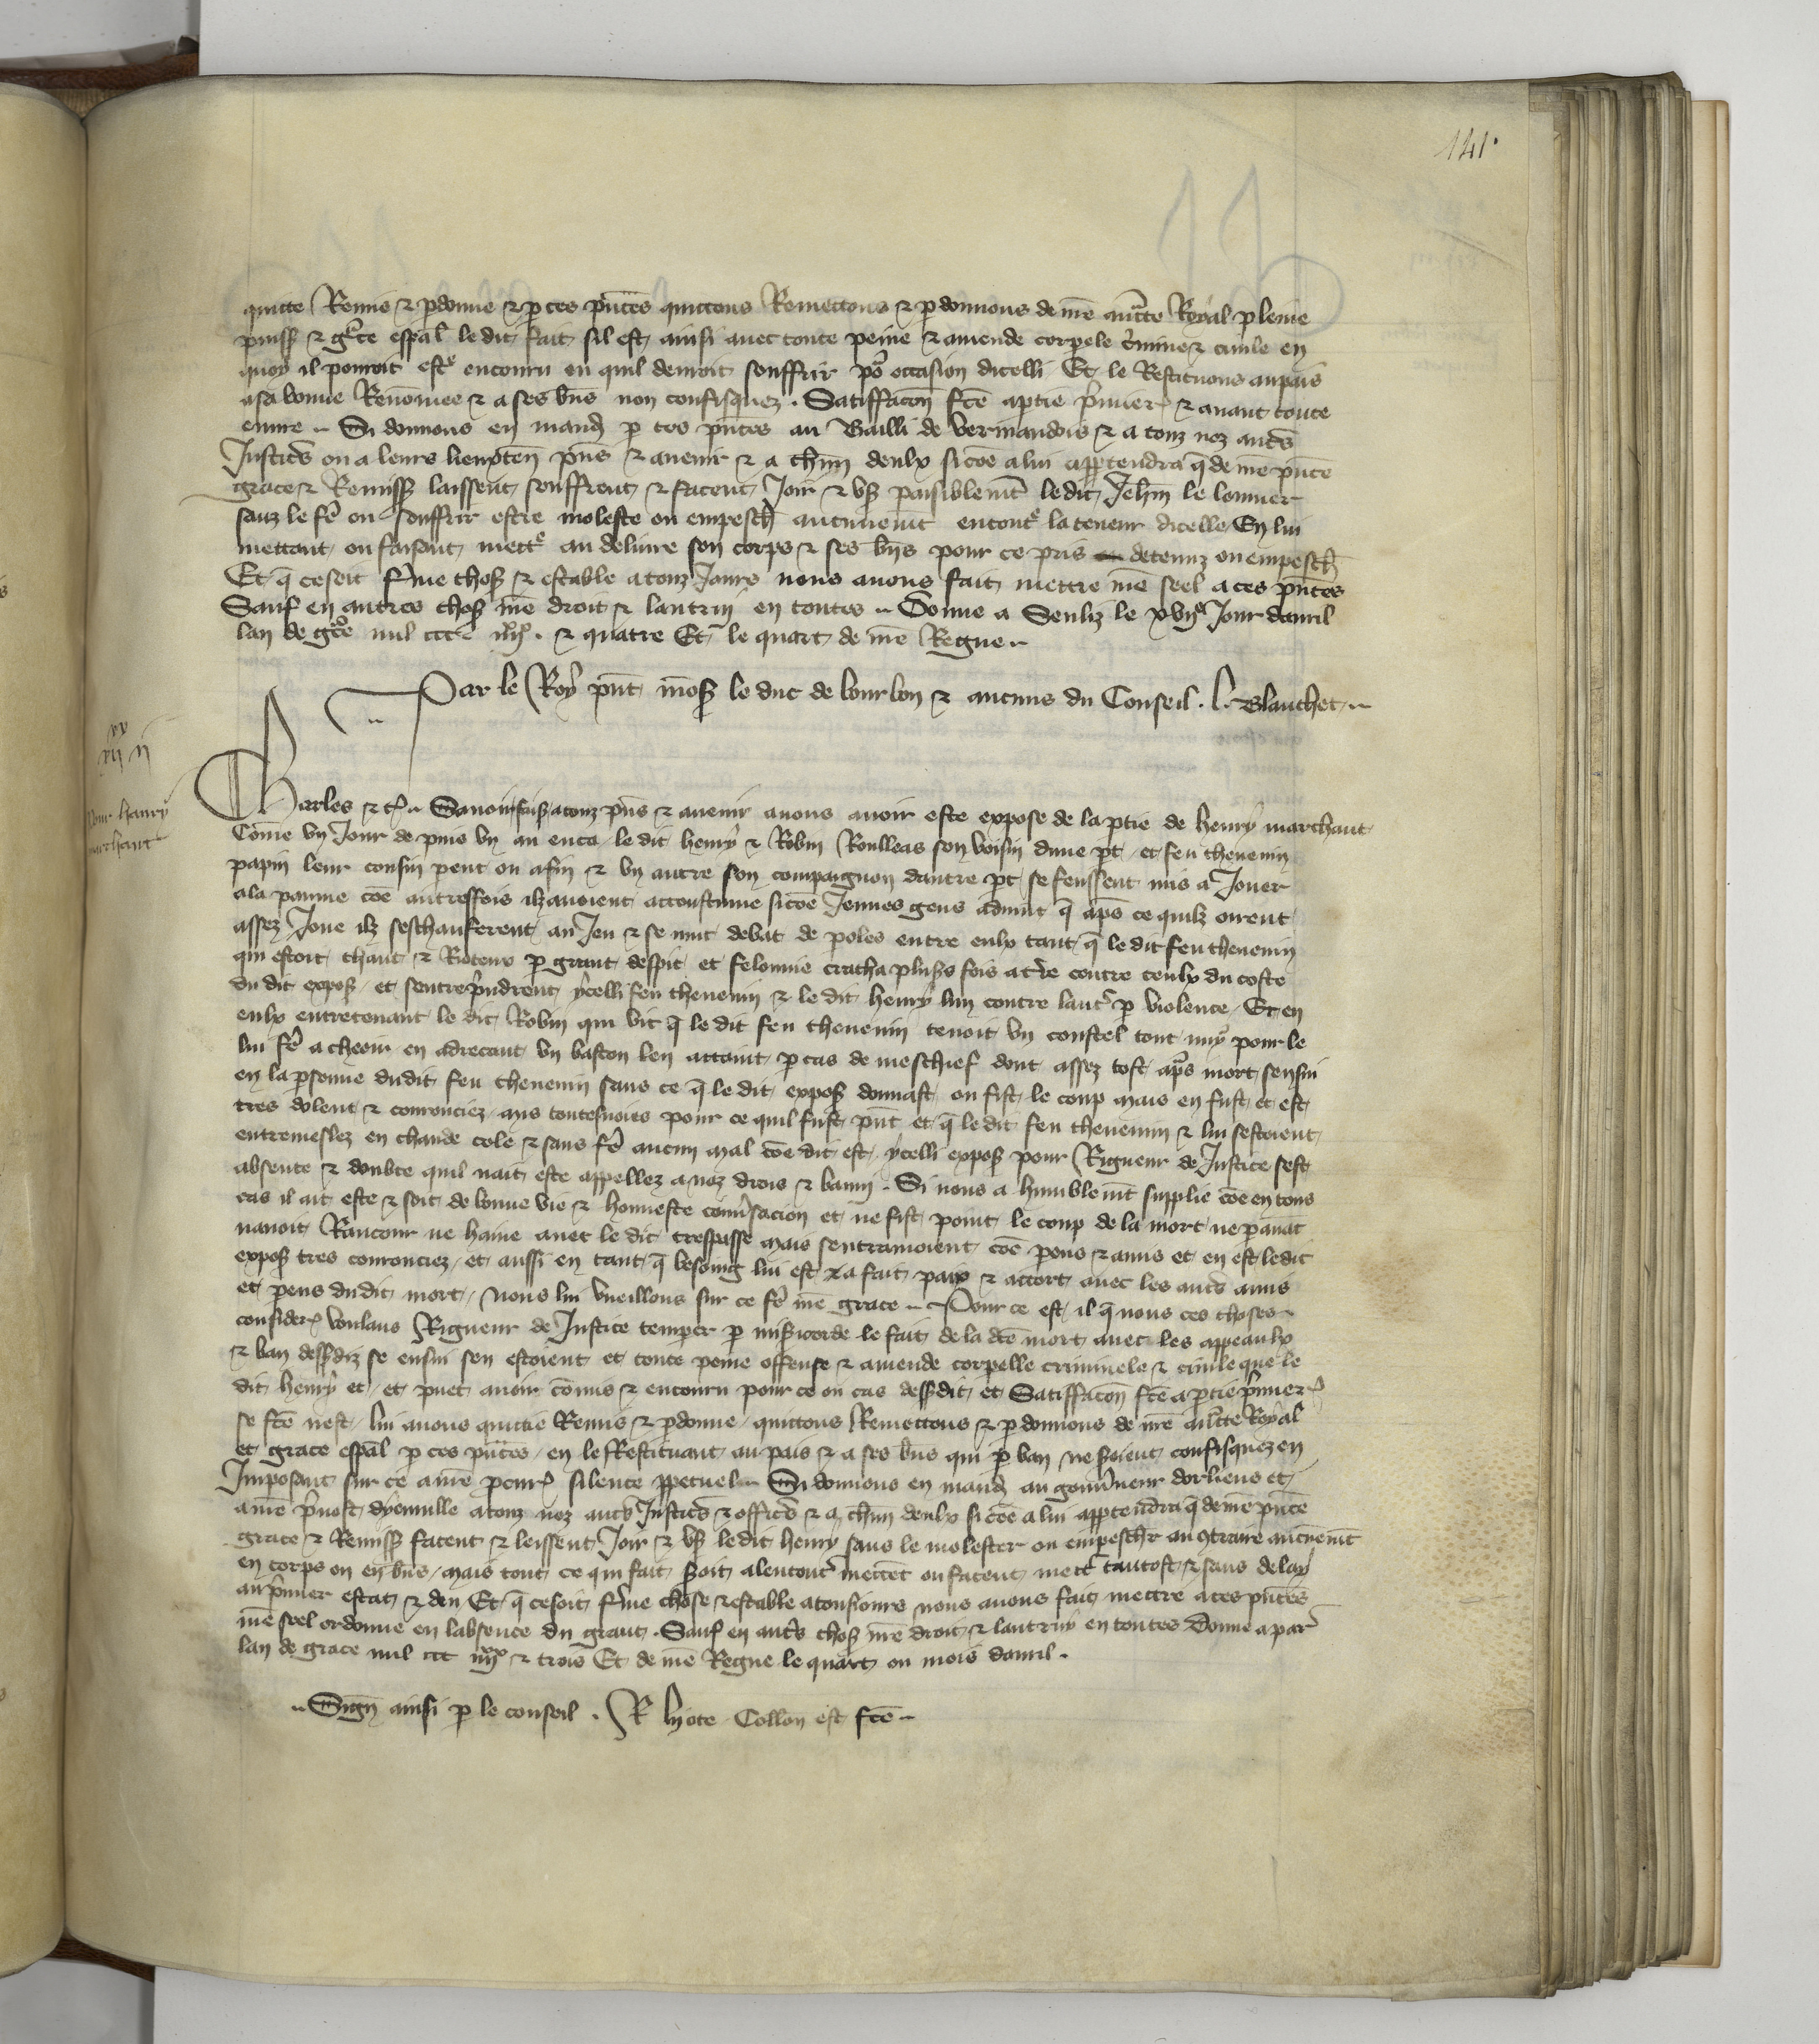 141.
quitte Remis & pdonne & p ces pntes quittons Remettons & pdonnons de nre auctte Royal pleine
puiss & grace espal le dit fait sil est ainsi avec toute peine & amende corpele crimine & civile en
quoy il pourroit estre encouru ou quil devroit souffrir por occasion dicelli Et le Restituons au pais
a sa bonne Renommee & a ses bns non confisquez . Satiffacon fce a ptie primier & avant toute
euvre .. Si donnons en mand p ces pntes au Bailli de Vermandois & a touz noz autrs
Justicrs ou a leurs lieuxten pns & avenir & a chun deulx si coe a lui apptendra q de nre pnte
grace & Remiss laissent seuffrent & facent Joir & us paisiblemt le dit Jehan le Lonnier
sanz le fe ou souffrir estre moleste ou empesch aucunemt encontre la teneur dicelle En lui
mettant ou faisant mettre au delivre son corps & ses bns pour ce pris detenuz ou empesch
Et q ce soit ferme chose & estable a touz Jours nous avons fait mettre nre seel a ces pntes
Sauf en autres choses nre droit & lautruy en toutes .. Donne a Senliz le xvije Jour davril
lan de grce mil ccc iiijxx . & quatre Et le quart de nre Regne ..
Par le Roy pnt mons le duc de Bourbon & aucuns du Conseil . L. Blanchet ..
xv
xij ij
Pour henry
marchant
Charles & c .. Savoir faisons a touz pns & avenir a nous avoir este expose de la ptie de henry marchant
Come un Jour de puis un an enca le dit henry & Robin Roulleas son voisin dune pt et feu thevenin
papin leur cousin peut ou afin & un autre son compaignon dautre pt se feussent mis a Jouer
a la paume coe autreffois ilz avoient accoustume si coe Jeunes gens advint q aps ce quilz orent
assez Joue ilz seschauferent au Jeu & se mut debat de poles entre eulx tant q le dit feu thevenin
qui estoit chaut & Rioteux p grant despit et felonnie cracha pluss fois a tre contre ceulx du coste
du dit expos et sentreprindrent ycelli feu thevenin & le dit henry lun contre lautre p violence Et en
eulx entretenant le dit Robin qui vit q le dit feu thevenin tenoit un coustel tout nuz pour le
lui fe a cheoir en adrecant un baston len attaint p cas de meschief dont assez tost aps mort sensui
en la psonne dudit feu thevenin sans ce q le dit expos donnast ou fist le coup mais en fust et est
tres dolent & courrouciez mis toutesvoies pour ce quil fust pnt et q le dit feu thevenin & lui sestoient
entremeslez en chaude cole & sans fe aucun mal coe dit est ycelli expos pour Rigueur de Justice sest
absente & doubte quil nait este appellez a noz drois & banni . Si nous a humblemt supplie coe en tous
cas il ait este & soit de bonne vie & honneste convsacion et ne fist point le coup de la mort ne pavant
navoit Rancour ne haine avec le dit trespasse mais sentramoient coe pens & amis et en est le dit
expos tres courrouciez et aussi en tant q besoing lui est & a fait paix & accort avec les autrs amis
et pens dudit mort nous lui vueillons sur ce fe nre grace .. Pour ce est il q nous ces choses
consider voulans Rigueur de Justice temper p misicorde le fait de la dce mort avec les appeaulx
& ban dessdiz se ensui sen estoient et toute peine offense & amende corpelle criminele & civile que le
dit henry et et puet avoir comis & encouru pour ce ou cas dessdit et Satiffacon fce a ptie primier
se fce nest lui avons quittie Remis & pdonne quittons Remettons & pdonnons de nre auctte Royal
et grace espal p ces pntes en le Restituant au pais & a ses bns qui p ban ne soient confisquez en
Imposant sur ce a nre pcur silence ppetuel .. Si donnons en mand au gouvneur dorliens et
a nre pvost dyenville a touz noz autrs Justicrs & officrs & a chun deulx si coe a lui apptendra q de nre pnte
grace & Remiss facent & leissent Joir & us le dit henry sans le molester ou empescher au contraire aucunemt
en corps ou en bns mais tout ce qui fait soit alencontre mettent ou facent mettre tantost & sans delay
au primier estat & deu Et q ce soit ferme chose & estable a tousiours nous avons fait mettre a ces pntes
nre seel ordonne en labsence du grant . Sauf en autrs choses nre droit & lautruy en toutes Donne a par
lan de grace mil ccc iiijxx & trois Et de nre Regne le quart ou mois davril .
.. Sign ainsi p le conseil . R Lyote Collon est fce ..